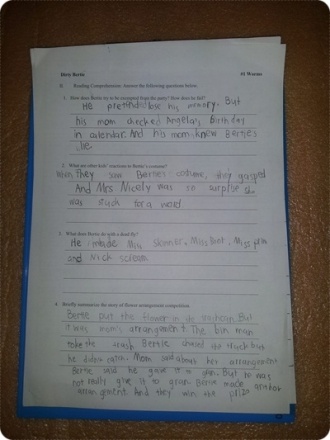 Dirty Bertie
#1 Worms
B. Reading Comprehension: Answer the following questions below.
1. How does Bertie try to be excused from the party? How does he fail?
He pretends lose his memory. But
his mom checked Angela's birthday
in calendar. And his mom knew Bertie's
lie.
2. What are other kids' reactions to Bertie's costume?
When They saw Bertie's costume, they gasped
And Mrs Nicely was so surprise she
was stuck for a word.
3. What does Bertie do with a dead fly?
He made Miss Skinner, Miss Boot, Miss prim
and Nick scream.
4. Briefly summarize the story of flower arrangement competition.
Bertie put the flower in de But
it was mom's arrangement. The bin man
take the trash Bertie chased the truck but
he didn't catch. Mom said about her arrangement
Bertie said he gave it to gran. But he was
not really give it to gran. Bertie made another
arrangement. And they win the prize